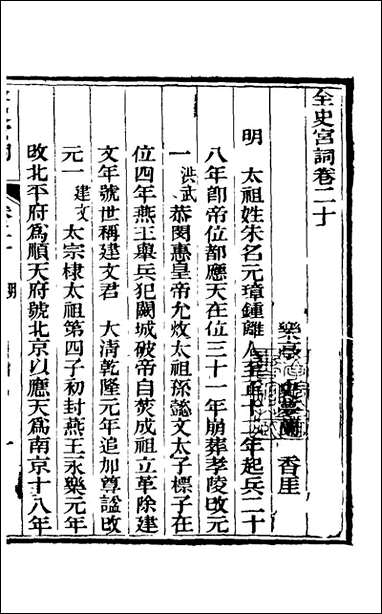 全史宮詞卷二十
樂亭 史夢蘭 香厓
明 太祖姓朱名元璋鍾離人至正十二年起兵二十
八年卽帝位都應天在位三十一年崩葬孝陵改元
一洪武 恭閔惠皇帝允炆太祖孫懿文太子標子在
位四年燕王舉兵犯闕城破帝自焚成祖立革除建
文年號世稱建文君 大清乾隆元年追加尊謚改
元一建文 太宗棣太祖第四子初封燕王永樂元年
改北平府爲順天府號北京以應天爲南京十八年